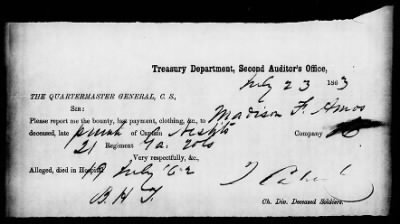 Treasury Department, Second Auditor's Office,
July 23 1863
THE QUARTERMASTER GENERAL, C. S.,
SIR:
Please report me the bounty, last payment, clothing, &c., to Madison F. Amos
deceased, late private of Captain Nesbits Company
21 Regiment Ga: Vols
Very respectfully, &c.,
Alleged, died in Hospital 19 July '62
B. H. T.
Ch. Div. Deceased Soldiers.